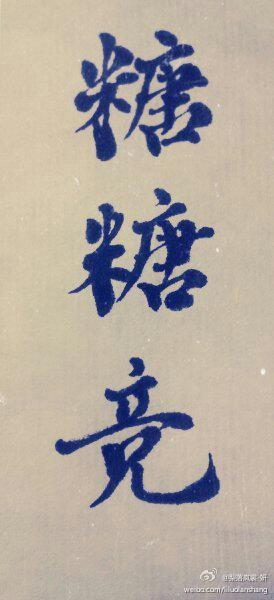 糖糖亮
weibo.com/liluolanshang